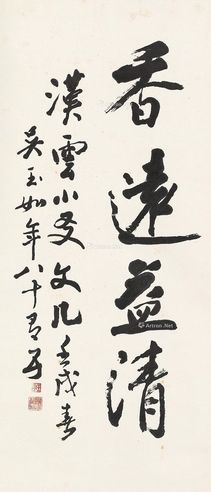 香遠益清
漢雲小友文几壬戌春
吳玉如年八十有五
Artron.Net